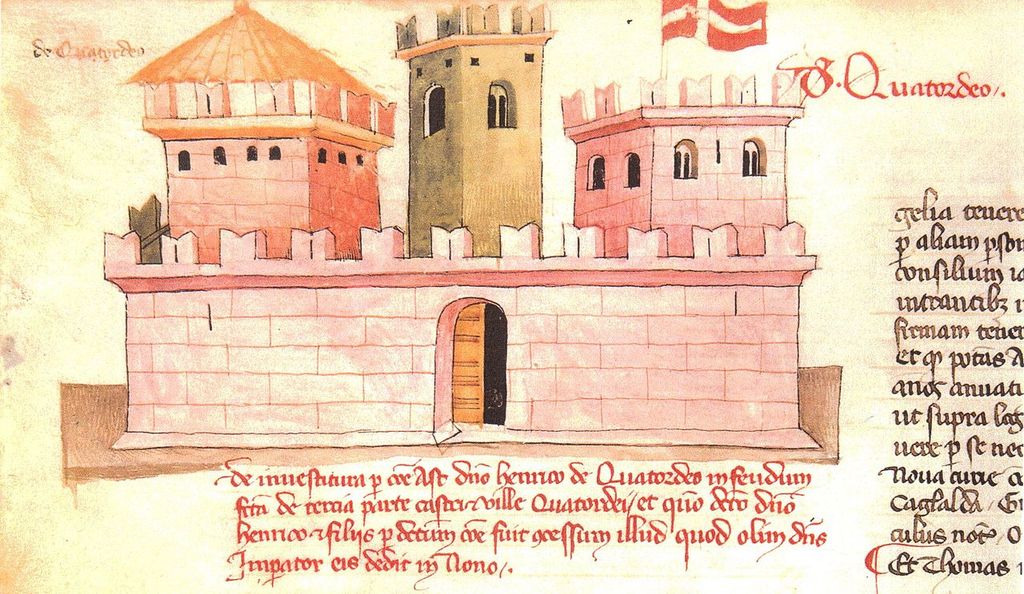 de Quatordeo
S. Quatordeo.
de inuestitura p cōe Ast dn̄o henrico de Quatordeo in feudum
fc̄ta de tercia parte castri & ville Quatordeij et quō dc̄to dn̄o
henrico & filijs p dictum cōe fuit ꝯcessum illud quod olim dn̄s
Imperator eis dedit in Nono.
gelia tenere
p aliam pson
consilium ia
intrantibꝫ
firmam tener
et qꝫ potūs A
anos annuati
ut supra leg
uere p se nec
Noua curie ce
Caglalda Gr
culus not O
Et Thomas